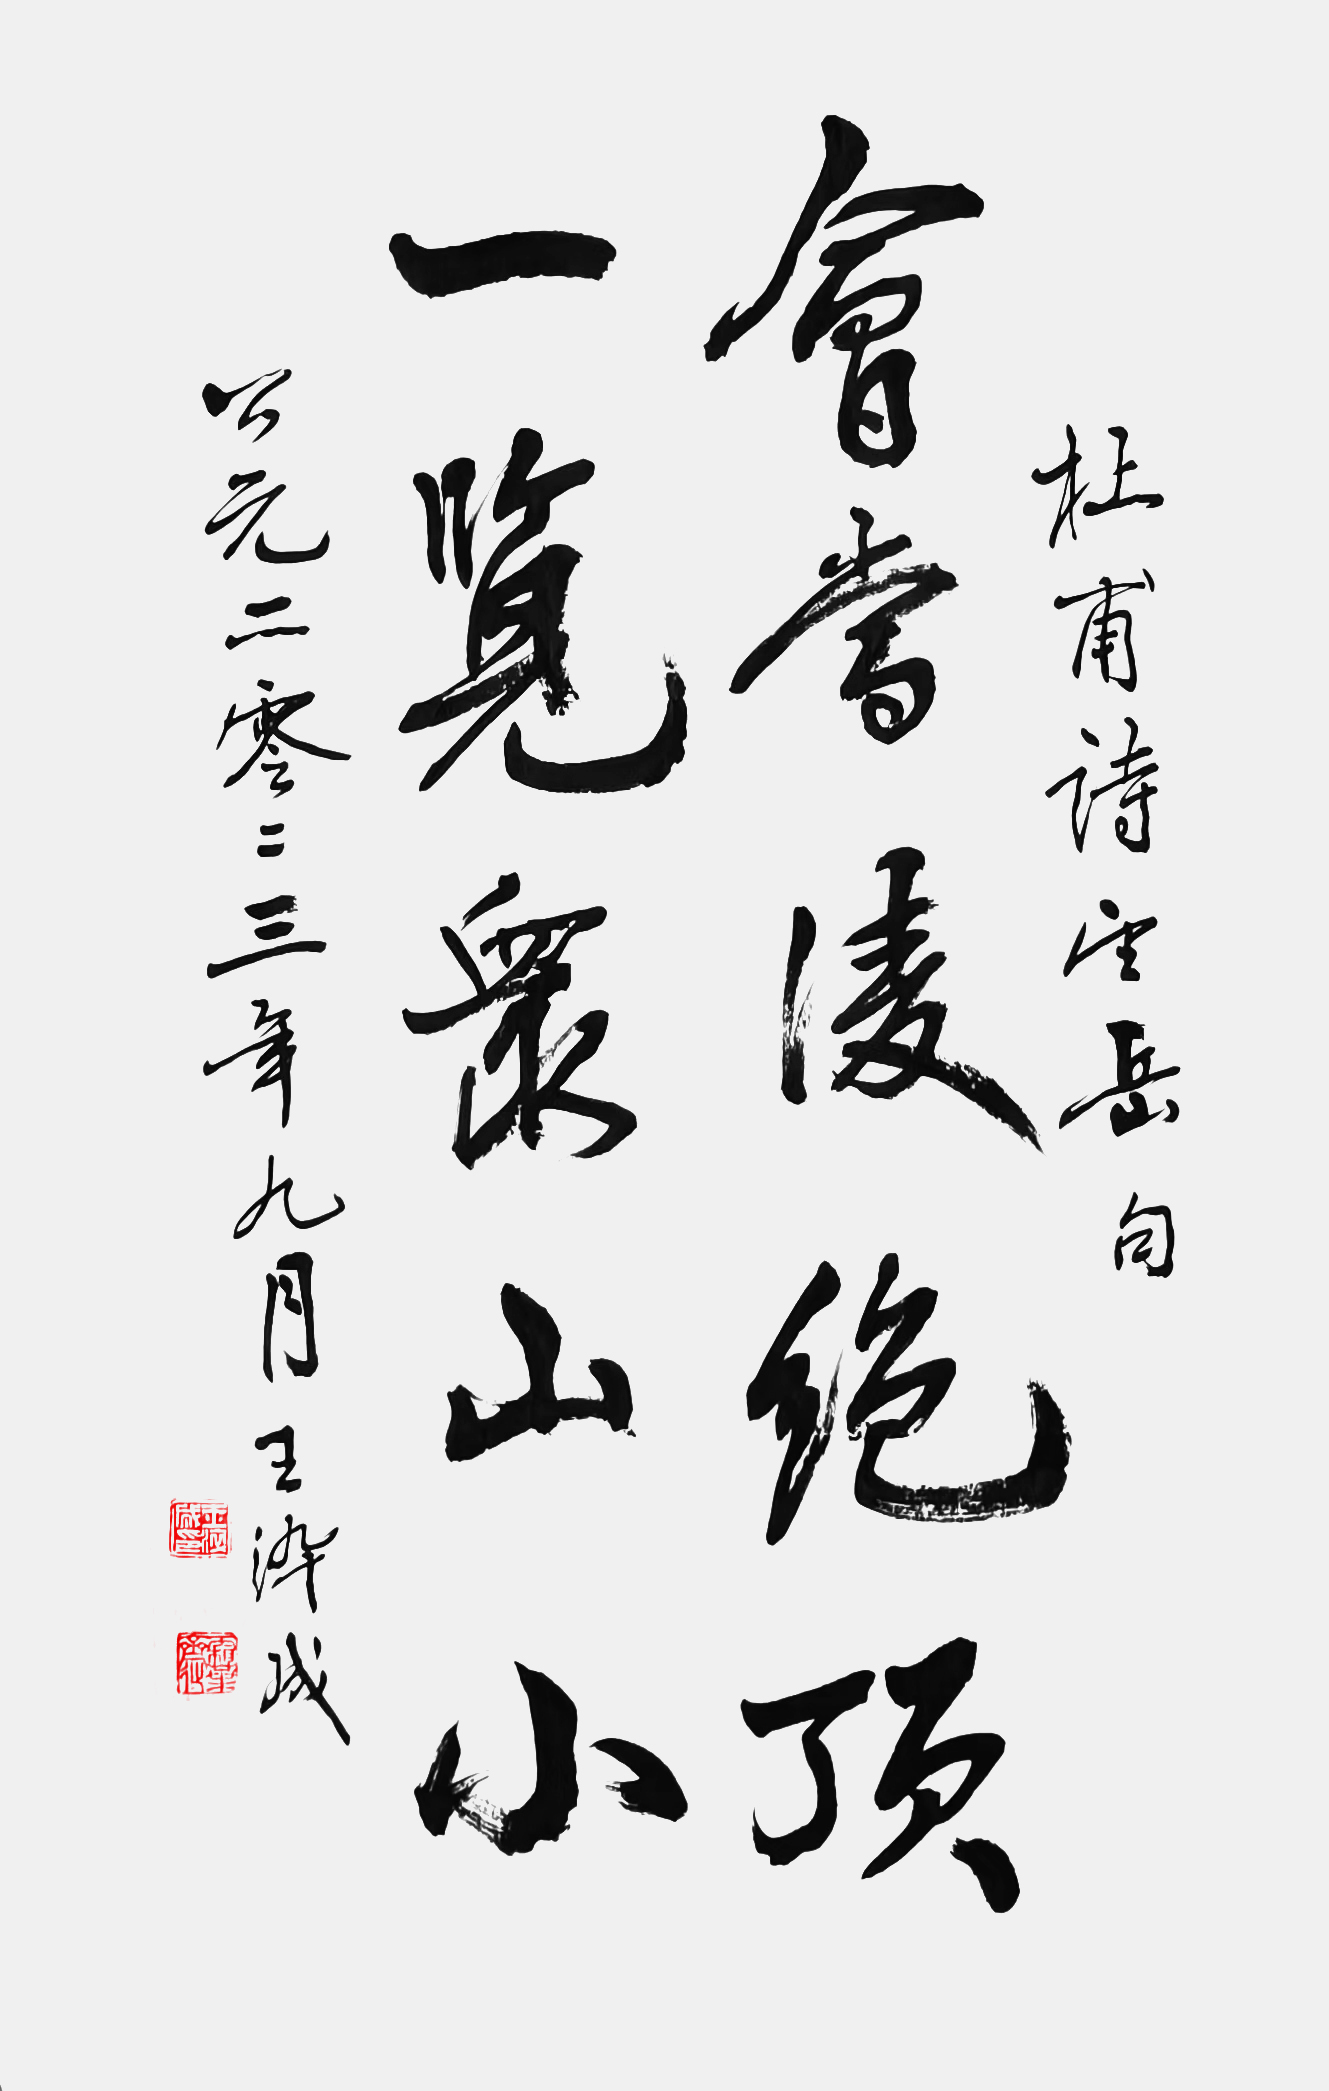 杜甫詩望岳句
會當凌絕頂
一覽衆山小
公元二零二三年九月王泽成